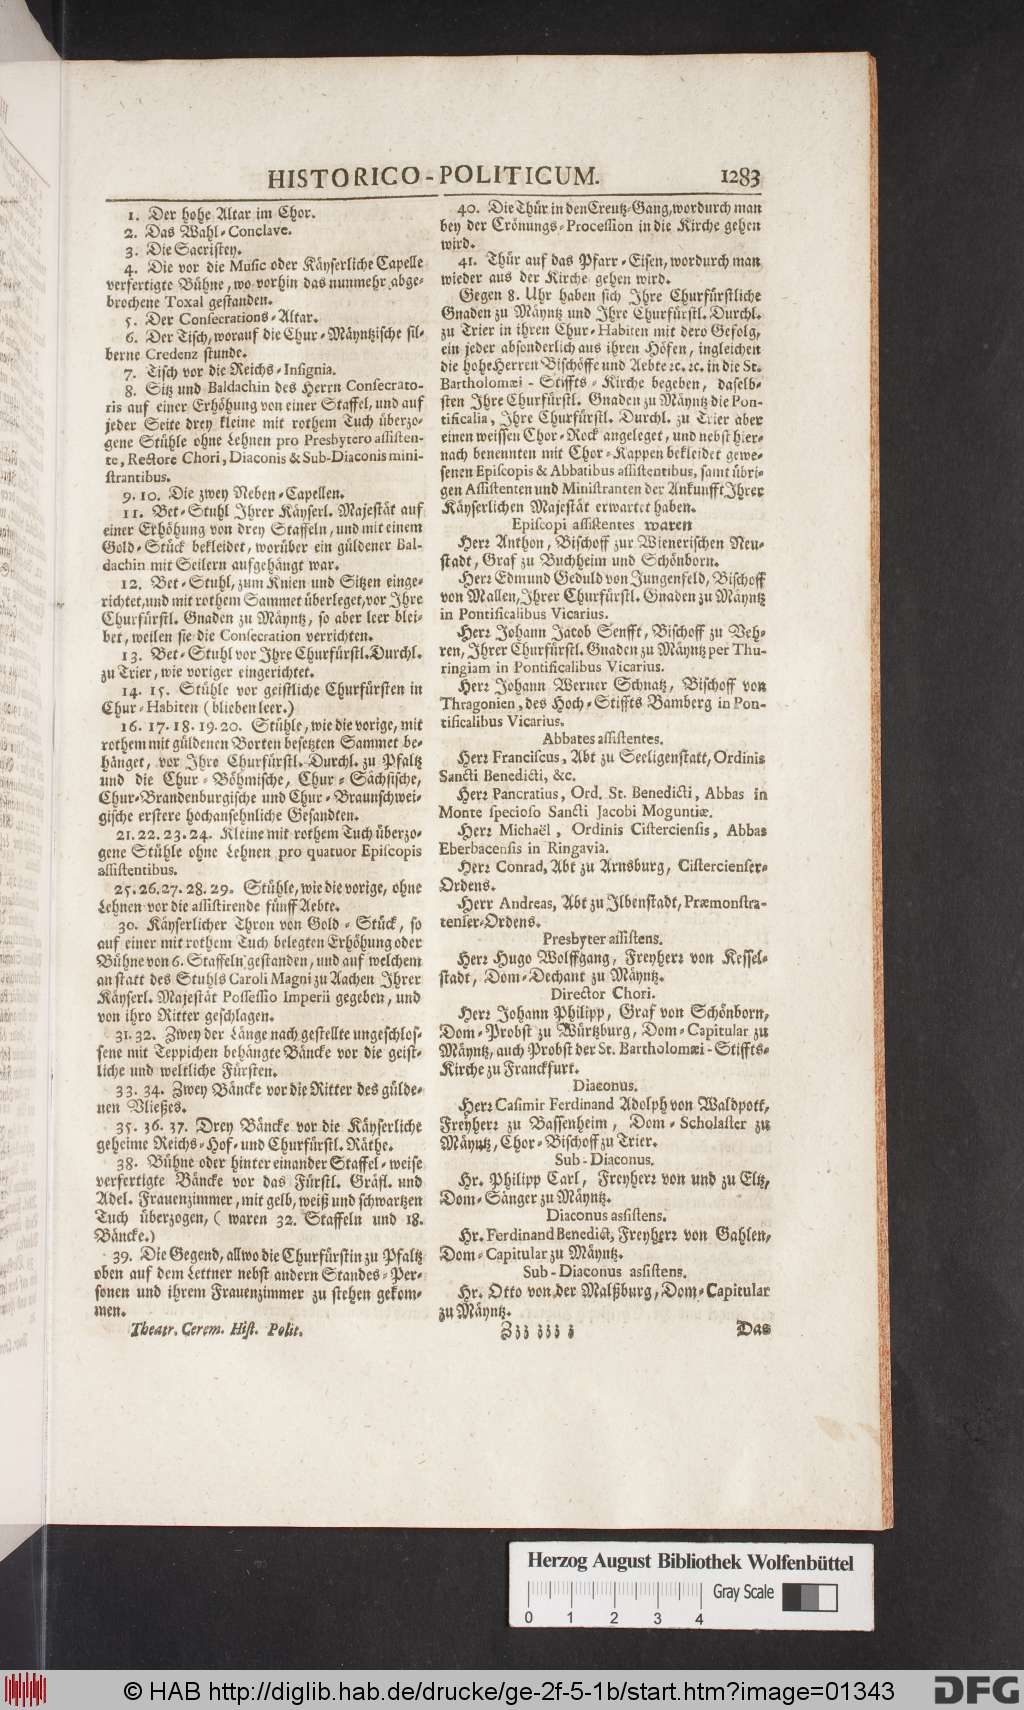 HISTORICO-POLITICUM. 1283
1. Der hohe Altar im Chor.
2. Das Wahl-Conclave.
3. Die Sacristey.
4. Die vor die Music oder Käyserliche Capelle
verfertigte Bühne, wo vorhin das nunmehr abge-
brochene Toxal gestanden.
5. Der Consecrations-Altar.
6. Der Tisch, worauf die Chur-Mäyntzische sil-
berne Credenz stunde.
7. Tisch vor die Reichs-Insignia.
8. Sitz und Baldachin des Herrn Consecrato-
ris auf einer Erhöhung von einer Staffel, und auf
jeder Seite drey kleine mit rothem Tuch überzo-
gene Stühle ohne Lehnen pro Presbytero assisten-
te, Rectore Chori, Diaconis & Sub-Diaconis mini-
strantibus.
9. 10. Die zwey Neben-Capellen.
11. Bet-Stuhl Ihrer Käyserl. Majestät auf
einer Erhöhung von drey Staffeln, und mit einem
Gold-Stück bekleidet, worüber ein güldener Bal-
dachin mit Seilern aufgehängt war.
12. Bet-Stuhl, zum Knien und Sitzen einge-
richtet, und mit rothem Sammet überleget, vor Ihre
Churfürstl. Gnaden zu Mäyntz, so aber leer blei-
bet, weilen sie die Consecration verrichten.
13. Bet-Stuhl vor Ihre Churfürstl. Durchl.
zu Trier, wie voriger eingerichtet.
14. 15. Stühle vor geistliche Churfürsten in
Chur-Habiten (blieben leer.)
16. 17. 18. 19. 20. Stühle, wie die vorige, mit
rothem mit güldenen Borten besetzten Sammet be-
hänget, vor Ihro Churfürstl. Durchl. zu Pfaltz
und die Chur-Böhmische, Chur-Sächsische,
Chur-Brandenburgische und Chur-Braunschwei-
gische erstere hochansehnliche Gesandten.
21. 22. 23. 24. Kleine mit rothem Tuch überzo-
gene Stühle ohne Lehnen pro quatuor Episcopis
assistentibus.
25. 26. 27. 28. 29. Stühle, wie die vorige, ohne
Lehnen vor die assistirende fünff Aebte.
30. Käyserlicher Thron von Gold-Stück, so
auf einer mit rothem Tuch belegten Erhöhung oder
Bühne von 6. Staffeln gestanden, und auf welchem
an statt des Stuhls Caroli Magni zu Aachen Ihrer
Käyserl. Majestät Possessio Imperii gegeben, und
von ihro Ritter geschlagen.
31. 32. Zwey der Länge nach gestellte ungeschlos-
sene mit Teppichen behängte Bäncke vor die geist-
liche und weltliche Fürsten.
33. 34. Zwey Bäncke vor die Ritter des gülde-
nen Vließes.
35. 36. 37. Drey Bäncke vor die Käyserliche
geheime Reichs-Hof- und Churfürstl. Räthe.
38. Bühne oder hinter einander Staffel-weise
verfertigte Bäncke vor das Fürstl. Gräfl. und
Adel. Frauenzimmer, mit gelb, weiß und schwartzen
Tuch überzogen, (waren 32. Staffeln und 18.
Bäncke.)
39. Die Gegend, allwo die Churfürstin zu Pfaltz
oben auf dem Lettner nebst andern Standes-Per-
sonen und ihrem Frauenzimmer zu stehen gekom-
men.
Theatr. Cerem. Hist. Polit.
40. Die Thür in den Creutz-Gang, wordurch man
bey der Crönungs-Procession in die Kirche gehen
wird.
41. Thür auf das Pfarr-Eisen, wordurch man
wieder aus der Kirche gehen wird.
Gegen 8. Uhr haben sich Ihre Churfürstliche
Gnaden zu Mäyntz und Ihre Churfürstl. Durchl.
zu Trier in ihren Chur-Habiten mit dero Gefolg,
ein jeder absonderlich aus ihren Höfen, ingleichen
die hohe Herren Bischöffe und Aebte ꝛc. ꝛc. in die St.
Bartholomæi-Stiffts-Kirche begeben, daselb-
sten Ihre Churfürstl. Gnaden zu Mäyntz die Pon-
tificalia, Ihre Churfürstl. Durchl. zu Trier aber
einen weissen Chor-Rock angeleget, und nebst hier-
nach benennten mit Chor-Kappen bekleidet gewe-
senen Episcopis & Abbatibus assistentibus, samt übri-
gen Assistenten und Ministranten der Ankunfft Ihrer
Käyserlichen Majestät erwartet haben.
Episcopi assistentes waren
Herr Anthon, Bischoff zur Wienerischen Neu-
stadt, Graf zu Buchheim und Schönborn.
Herr Edmund Geduld von Jungenfeld, Bischoff
von Mallen, Ihrer Churfürstl. Gnaden zu Mäyntz
in Pontificalibus Vicarius.
Herr Johann Jacob Senfft, Bischoff zu Veh-
ren, Ihrer Churfürstl. Gnaden zu Mäyntz per Thu-
ringiam in Pontificalibus Vicarius.
Herr Johann Werner Schnatz, Bischoff von
Thragonien, des Hoch-Stiffts Bamberg in Pon-
tificalibus Vicarius.
Abbates assistentes.
Herr Franciscus, Abt zu Seeligenstatt, Ordinis
Sancti Benedicti, &c.
Herr Pancratius, Ord. St. Benedicti, Abbas in
Monte specioso Sancti Jacobi Moguntiæ.
Herr Michaël, Ordinis Cisterciensis, Abbas
Eberbacensis in Ringavia.
Herr Conrad, Abt zu Arnsburg, Cistercienser-
Ordens.
Herr Andreas, Abt zu Ilbenstadt, Præmonstra-
tenser-Ordens.
Presbyter assistens.
Herr Hugo Wolffgang, Freyherr von Kessel-
stadt, Dom-Dechant zu Mäyntz.
Director Chori.
Herr Johann Philipp, Graf von Schönborn,
Dom-Probst zu Würtzburg, Dom-Capitular zu
Mäyntz, auch Probst der St. Bartholomæi-Stiffts-
Kirche zu Franckfurt.
Diaconus.
Herr Casimir Ferdinand Adolph von Waldpott,
Freyherr zu Bassenheim, Dom-Scholaster zu
Mäyntz, Chor-Bischoff zu Trier.
Sub-Diaconus.
Hr. Philipp Carl, Freyherr von und zu Eltz,
Dom-Sänger zu Mäyntz.
Diaconus assistens.
Hr. Ferdinand Benedict, Freyherr von Gahlen,
Dom-Capitular zu Mäyntz.
Sub-Diaconus assistens.
Hr. Otto von der Maltzburg, Dom-Capitular
zu Mäyntz.
Zzz zzz z Das
Herzog August Bibliothek Wolfenbüttel
Gray Scale
0 1 2 3 4
© HAB http://diglib.hab.de/drucke/ge-2f-5-1b/start.htm?image=01343 DFG